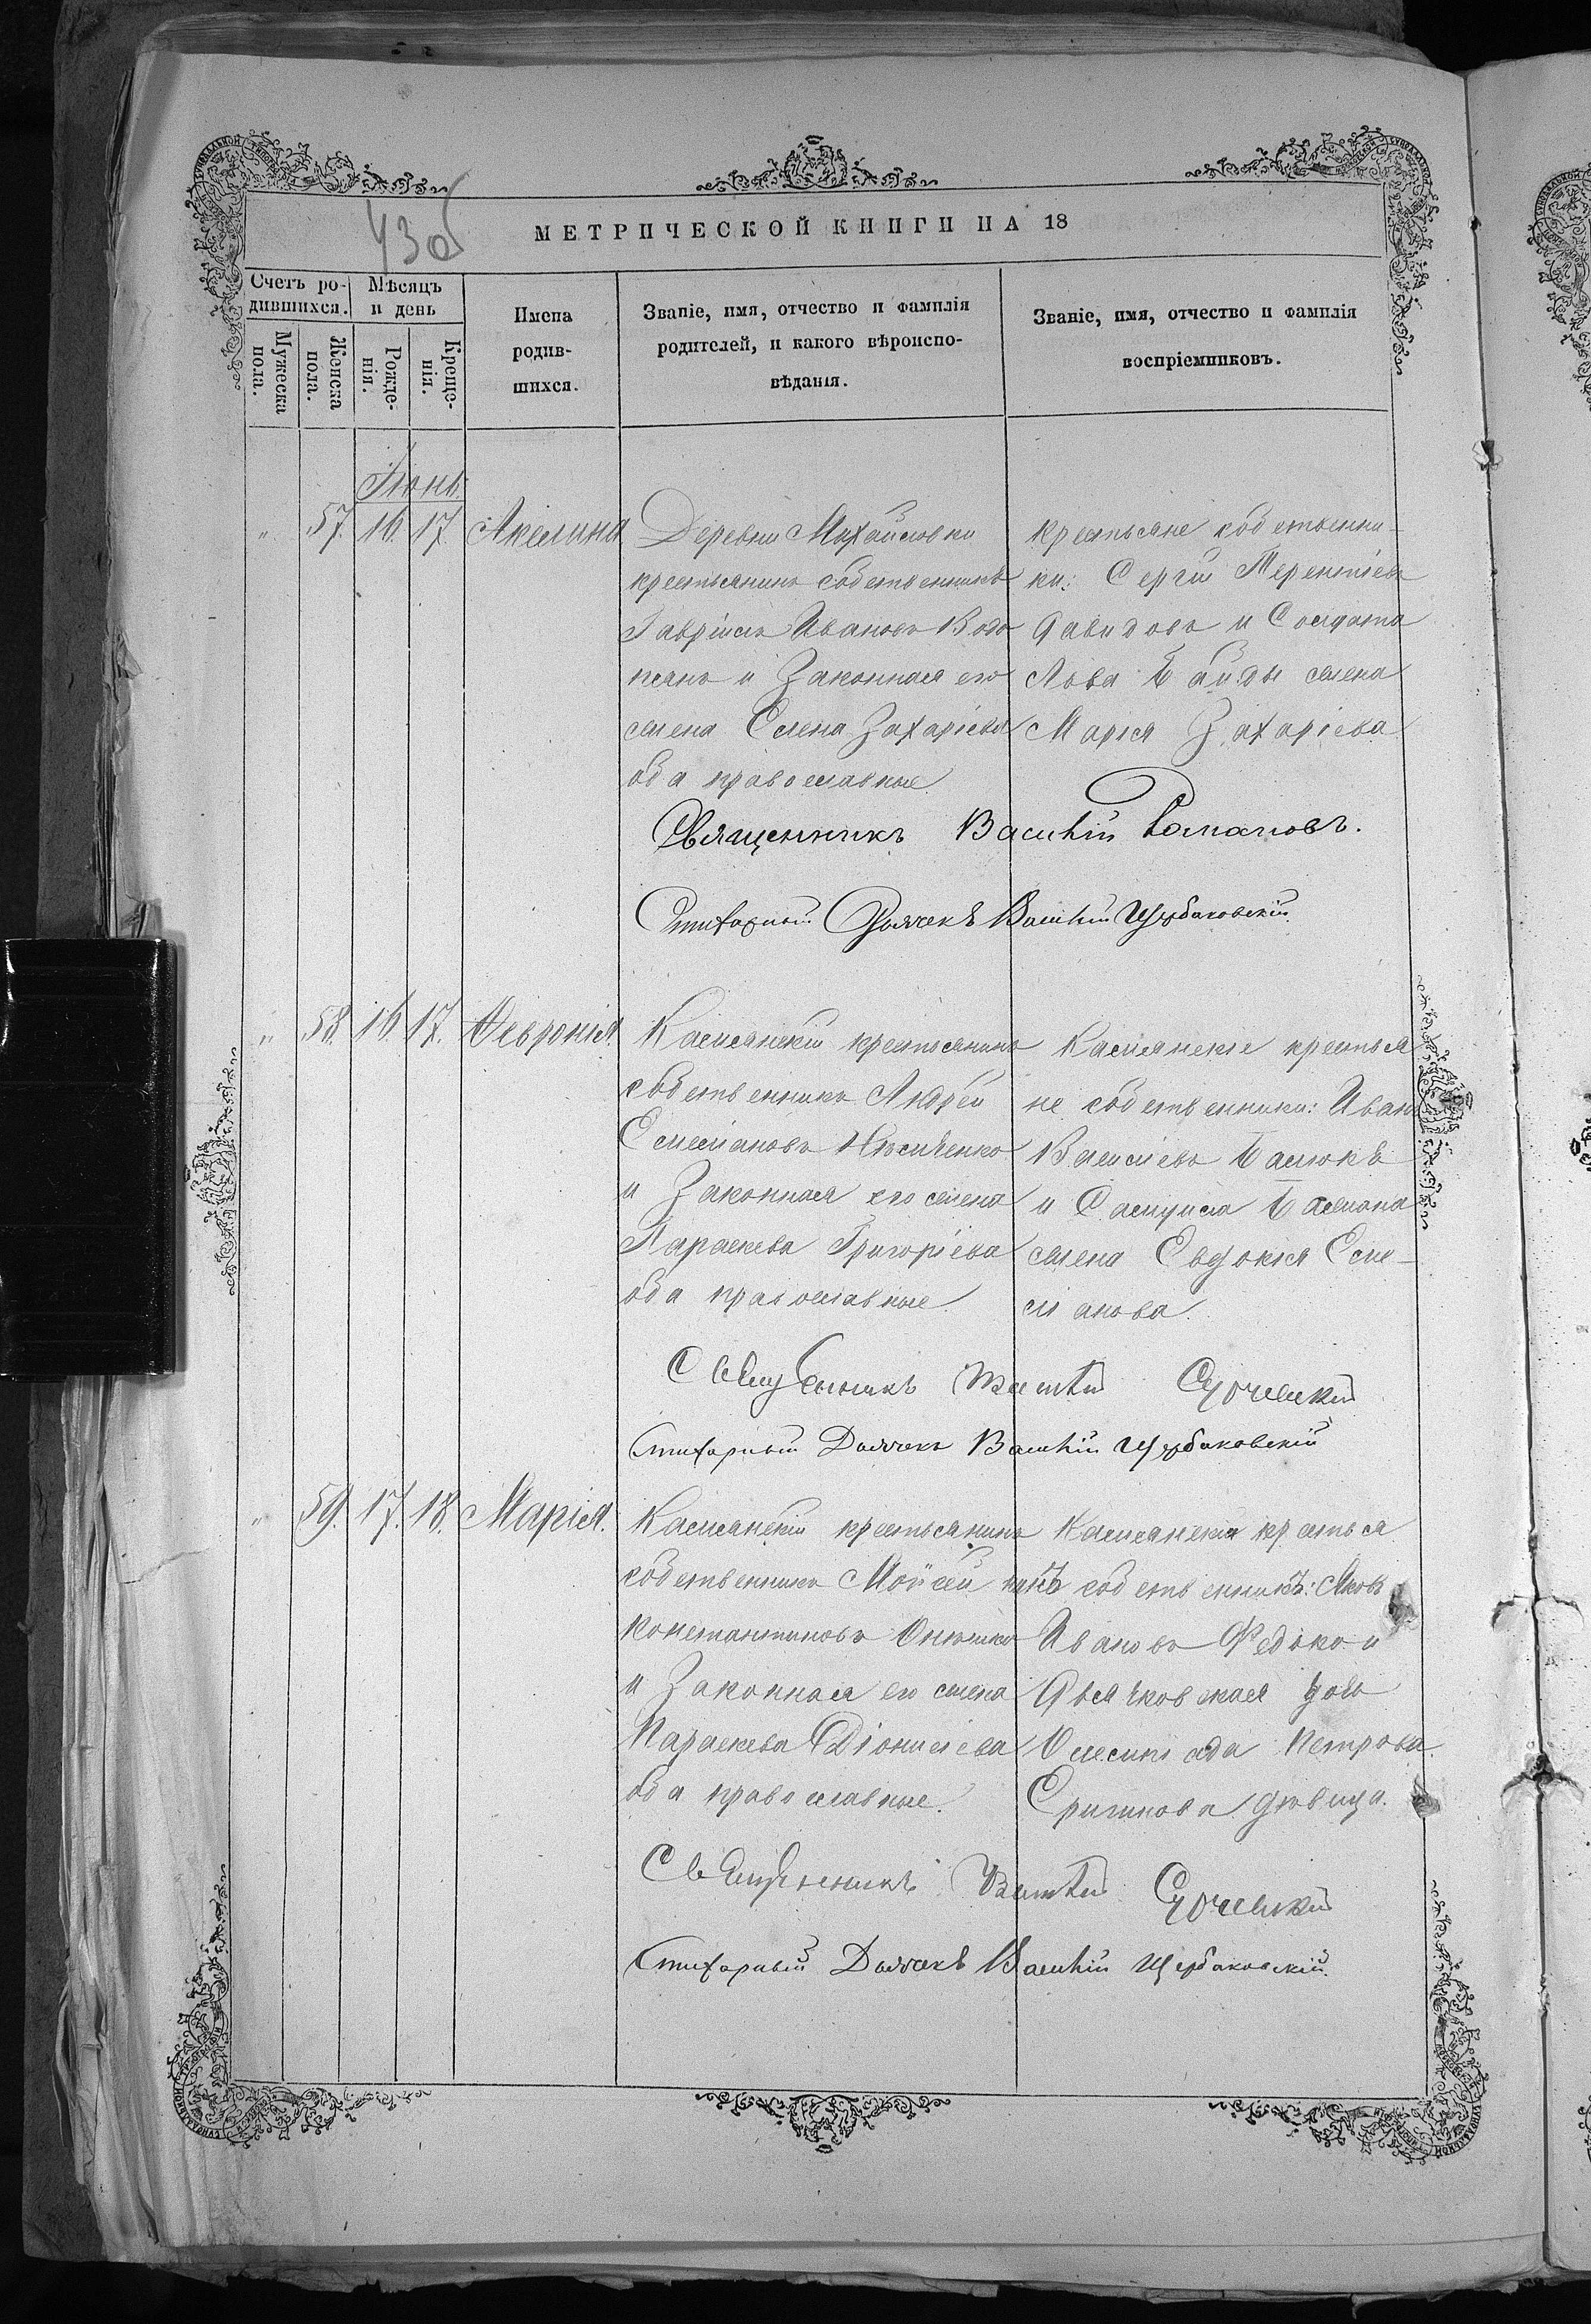 43об
МЕТРИЧЕСКОЙ КНИГИ НА 18
Счетъ ро-
дившихся.
Мѣсяцъ
и день
Мужеска
пола.
Женска
пола.
Рожде-
нія.
Креще-
нія.
Имена
родив-
шихся.
Званіе, имя, отчество и фамилія
родителей, и какого вѣроиспо-
вѣданія.
Званіе, имя, отчество и фамилія
воспріемниковъ.
Іюнь
" 57. 16. 17. Акилина
Деревни Михайловки
крестьянинъ собственникъ
Гавріилъ Ивановъ Водо
и Законная его
жена Елена Захаріева
оба православные.
крестьяне собственни-
ки: Сергій Терентіевъ
Давидовъ и Солдата
Льва Байды жена
Марія Захаріева
Священникъ Василій Романовъ.
Стихарный Дьячекъ Василій Щербаковскій.
" 58. 16. 17. Февронія.
крестьянинъ
собственникъ Андрей
Емеліановъ
и Законная его жена
Параскева Григоріева
оба православные.
крестья
не собственники: Иванъ
Василіевъ Балюкъ
и Самуила
жена Евдокія Еме-
ліанова.
Священникъ Василій
Стихарный Дьячекъ Василій Щербаковскій
" 59. 17. 18. Марія.
крестьянинъ
собственникъ Моѵсей
Константиновъ
и Законная его жена
Параскева Діонисіева
оба православные.
крестья
нинъ собственникъ: Яковъ
Ивановъ Федько и
Дьячковская дочь
Олимпіада Петрова
дѣвица.
Священникъ Василій
Стихарный Дьячекъ Василій Щербаковскій.